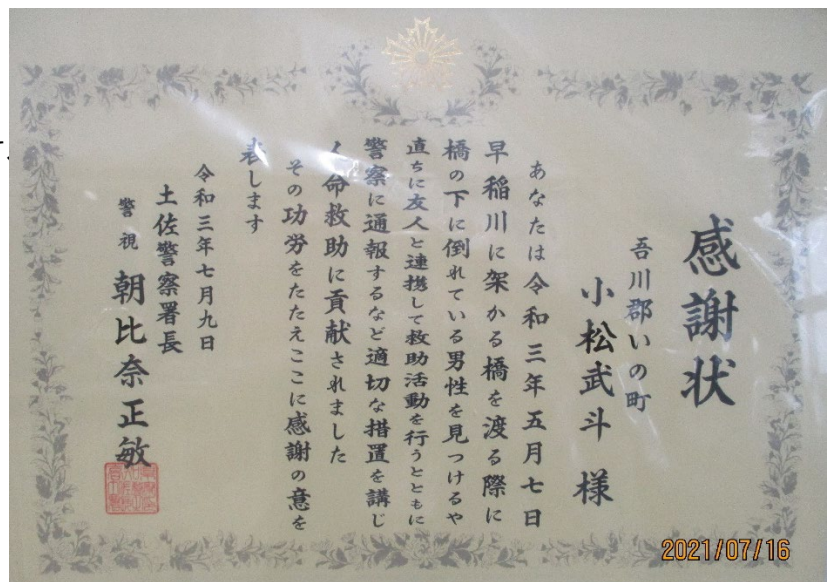 感謝状
吾川郡いの町
小松武斗 様
あなたは令和三年五月七日
早稲川に架かる橋を渡る際に
橋の下に倒れている男性を見つけるや
直ちに友人と連携して救助活動を行うとともに
警察に通報するなど適切な措置を講じ
人命救助に貢献されました
その功労をたたえここに感謝の意を
表します
令和三年七月九日
土佐警察署長
警視 朝比奈正敏
2021/07/16